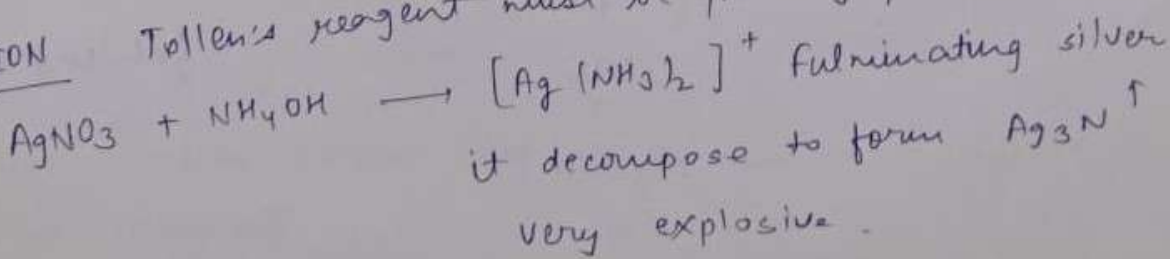 ION Tollen's reagent must be
AgNO3 + NH4OH → [Ag (NH3)2]+ Fulminating silver
it decompose to form Ag3N ↑
very explosive.